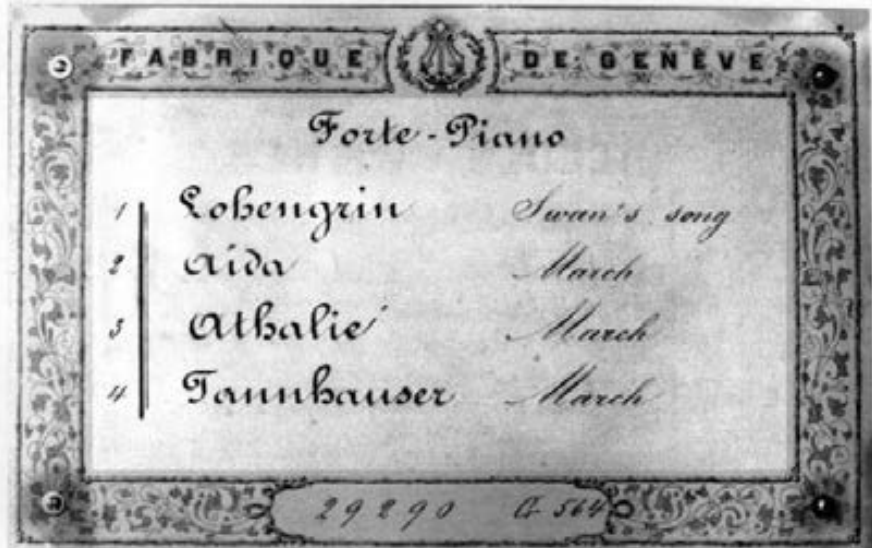 FABRIQUE DE GENÈVE
Forte-Piano
1 Lohengrin Swan's song
2 Aida March
3 Athalie March
4 Tannhauser March
29290 G 564